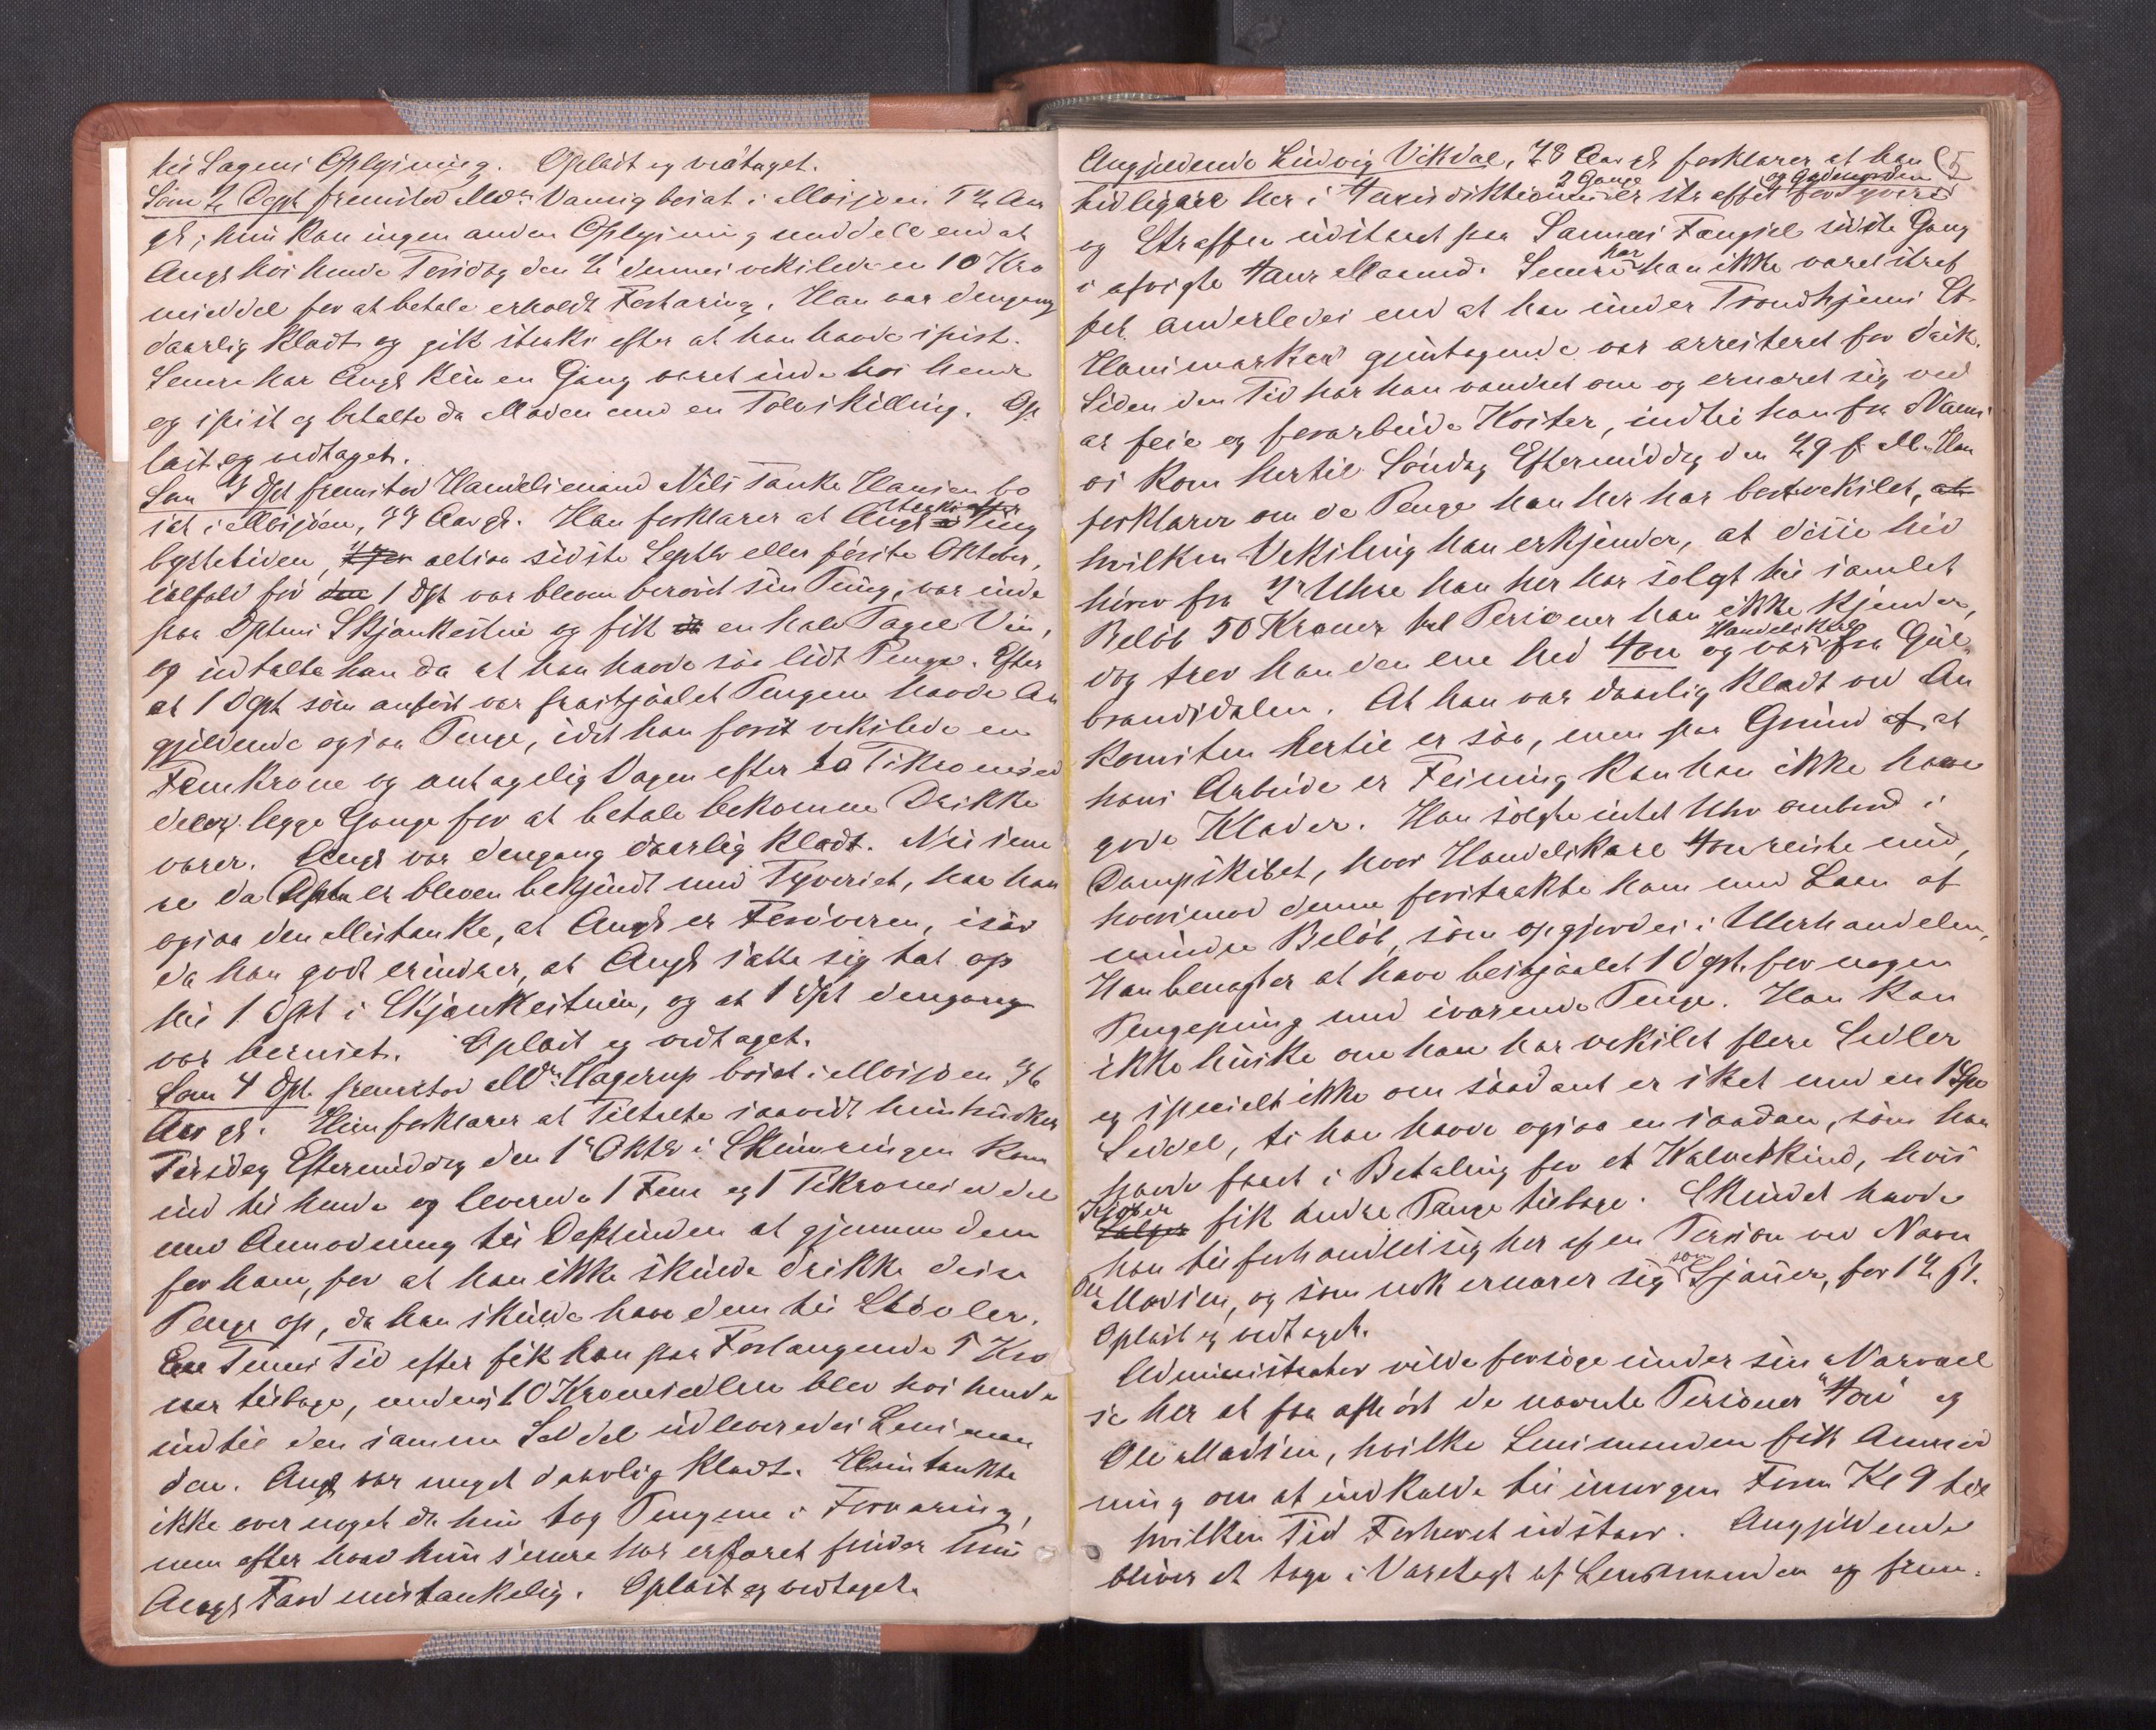 til Sagens Oplysning. Oplæst og vedtaget.
Som 2 Dept fremstod Mdm Vannig bosat i Mosjøen 52 Aar
gl; hun kan ingen anden Oplysning meddele end at
Angl hos hende Torsdag den 2 dennes vekslede en 10 Kro
nseddel for at betale erholdt Fortæring. Han var dengang
daarlig klædt og gik straks efter at han havde spist.
Senere har Angl kun en Gang været inde hos hende
og spist og betalte da Maden med en Tolvskilling. Op
læst og vedtaget.
Som 3 Dpt fremstod Handelsmand Nils Tanke Hansen bo
sat i Mosjøen, 33 Aar gl. Han forklarer at Angl straks efter Ting
bystetiden, altsaa sidste Septbr eller første Oktober,
ialfald før 1 Dpt var bleven berøvet sin Pung, var inde
paa Dptens Skjænkestue og fik en halv Pagel Vin,
og udtalte han da at han havde saa lidt Penge. Efter
at 1 Dept som anført var frastjaalet Pengene havde An
gjeldende ogsaa Penge, idet han først vekslede en
Femkrone og antagelig Dagen efter to Tikronesed
deler begge Gange for at betale bekomne Drikke
varer. Angl var dengang daarlig klædt. Nu sene
re da Dpten er bleven bekjendt med Tyveriet, har han
ogsaa den Mistanke, at Angl er Forøveren, især
da han godt erindrer, at Angl satte sig tæt op
til 1 Dpt i Skjænkestuen, og at 1 Dpt dengang
var beruset. Oplæst og vedtaget.
Som 4 Dpt. fremstod Mdm: Hagerup bosat i Mosjøen 36
Aar gl. Hun forklarer at Tiltalte saavidt hun husker
Tirsdag Eftermiddag den 1ste Oktbr i Skumringen kom
ind til hende og leverede 1 Fem og 1 Tikroneseddel
med Anmodning til Deptinden at gjemme dem
for ham, for at han ikke skulde drikke disse
Penge op, da han skulde have dem til Støvler.
En Times Tid efter fik han paa Forlangende 5 Kro
ner tilbage, medens 10 Kronesedlen blev hos hende
indtil den samme Seddel udleveredes Lensman
den. Angl var meget daarlig klædt. Hun tænkte
ikke over noget da hun tog Pengene i Forvaring,
men efter hvad hun senere har erfaret finder hun
Angls Færd mistænkelig. Oplæst og vedtaget.
Angjeldende Ludvig Vikdal, 28 Aar gl forklarer at han 5
tidligere her i Jurisdiktionen 2 Gange er straffet for Tyveri og Gadeuorden
og Straffen udstaaet paa Sannæs Fængsel sidste Gang
i afvigte Januar Maaned. Senere har han ikke været straf
fet anderledes end at han under Trondhjems St.
Hansmarked gjentagende var arresteret for Drik.
Siden den Tid har han vandret om og ernæret sig ved
at feie og forarbeide Koster, indtil han fra Nams
os kom hertil Søndag Eftermiddag den 29 f. M. Han
forklarer om de Penge han her har bortvekslet,
hvilken Veksling han erkjender, at disse hid
hører fra 2de Uhre han her har solgt til samlet
Beløb 50 Kroner til Personer han ikke kjender,
dog tror han den ene hed Jon og var Handelskarl fra Gul
brandsdalen. At han var daarlig klædt ved An
komsten hertil er saa, men paa Grund af at
hans Arbeide er Feining kan han ikke have
gode Klæder. Han solgte intet Uhr ombord i
Dampskibet, hvor Handelskarl Jon reiste med,
hvorimod denne forstrakte ham med Laan af
mindre Beløb, som opgjordes i Uhrhandelen.
Han benegter at have bestjaalet 1 Dpt. for nogen
Pengepung med ivarende Penge. Han kan
ikke huske om han har vekslet flere Sedler
og specielt ikke om saadant er sket med en 1 Spd
Seddel, ti han havde ogsaa en saadan, som han
havde faaet i Betaling for et Kalveskind, hvis
Kjøber fik andre Penge tilbage. Skindet havde
han tilforhandlet sig her af en Person ved Navn
Ole Madsen, og som nok ernærer sig som Sjauer, for 12 sk.
Oplæst og vedtaget.
Administrator vilde forsøge under sin Nærvæl
se her at faa afhørt de nævnte Personer "Jon" og
Ole Madsen, hvilke Lensmanden fik Anmod
ning om at indkalde til imorgen Form Kl 9 til
hvilken Tid Forhøret udstaar. Angjeldende
bliver at tage i Varetægt af Lensmanden og frem-